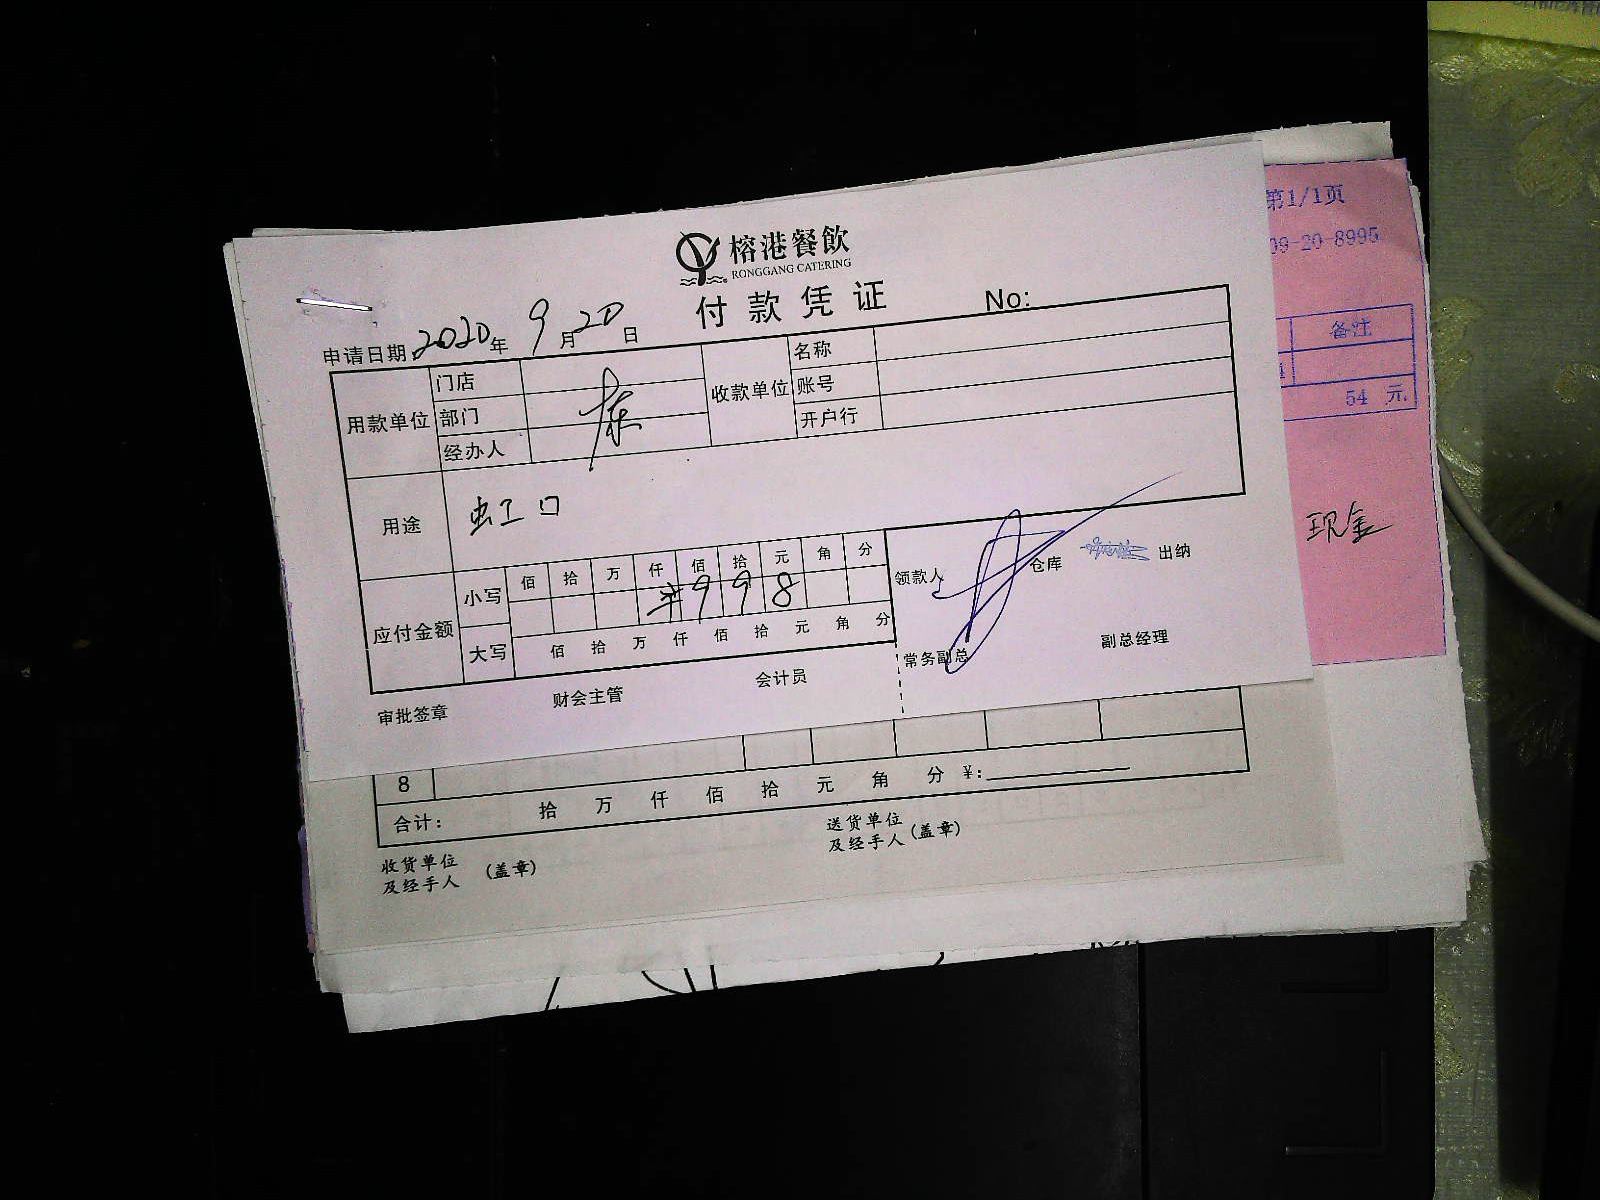 榕港餐飲
RONGGANG CATERING
付款凭证
No:
申请日期 2020年 9月20日
用款单位 门店
部门
经办人
收款单位 名称
账号
开户行
用途 虹口
应付金额 小写 佰 拾 万 仟 佰 拾 元 角 分
¥ 9 9 8
大写 佰 拾 万 仟 佰 拾 元 角 分
领款人 仓库 出纳
常务副总 副总经理
审批签章 财会主管 会计员
第1/1页
09-20-8995
备注
54 元
现金
8
合计: 拾 万 仟 佰 拾 元 角 分 ¥:
收货单位
及经手人 (盖章)
送货单位
及经手人 (盖章)